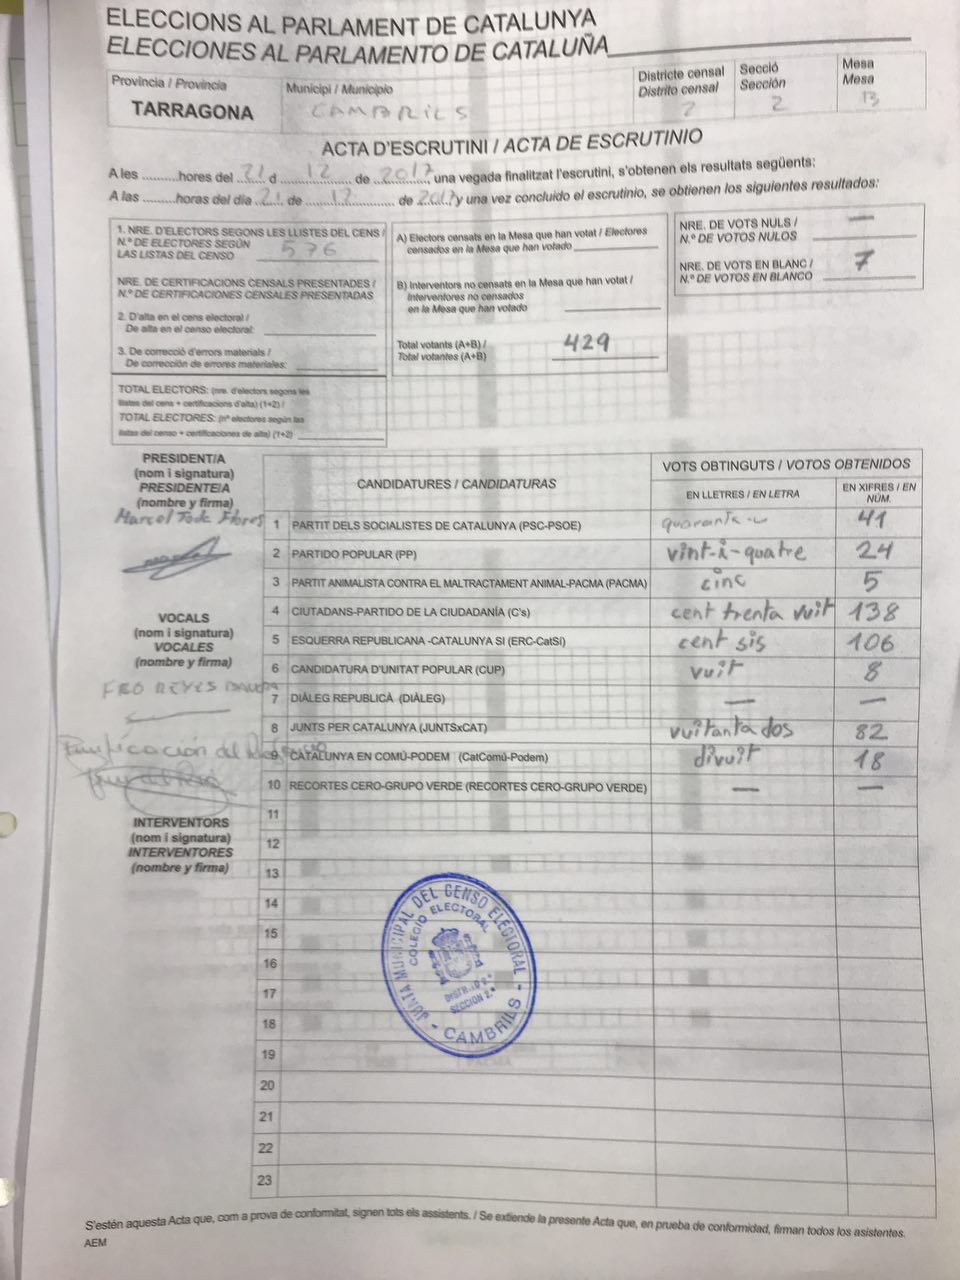 ELECCIONS AL PARLAMENT DE CATALUNYA
ELECCIONES AL PARLAMENTO DE CATALUÑA
Provincia / Provincia
TARRAGONA
Municipi / Municipio
CAMBRILS
Districte censal
Distrito censal
2
Secció
Sección
2
Mesa
Mesa
B
ACTA D'ESCRUTINI / ACTA DE ESCRUTINIO
A les ..........hores del 21 d 12 de 2017, una vegada finalitzat l'escrutini, s'obtenen els resultats següents:
A las ..........horas del día 21 de 12 de 2017 y una vez concluido el escrutinio, se obtienen los siguientes resultados:
1. NRE. D'ELECTORS SEGONS LES LLISTES DEL CENS /
N.º DE ELECTORES SEGÚN
LAS LISTAS DEL CENSO 576
NRE. DE CERTIFICACIONS CENSALS PRESENTADES /
N.º DE CERTIFICACIONES CENSALES PRESENTADAS
2. D'alta en el cens electoral /
De alta en el censo electoral:
3. De correcció d'errors materials /
De corrección de errores materiales:
TOTAL ELECTORS: (nre. d'electors segons les
llistes del cens + certificacions d'alta) (1+2) /
TOTAL ELECTORES: (nº electores según las
listas del censo + certificaciones de alta) (1+2)
A) Electors censats en la Mesa que han votat / Electores
censados en la Mesa que han votado
B) Interventors no censats en la Mesa que han votat /
Interventores no censados
en la Mesa que han votado
Total votants (A+B) /
Total votantes (A+B)
429
NRE. DE VOTS NULS /
N.º DE VOTOS NULOS —
NRE. DE VOTS EN BLANC /
N.º DE VOTOS EN BLANCO 7
PRESIDENT/A
(nom i signatura)
PRESIDENTE/A
(nombre y firma)
Marcel
VOCALS
(nom i signatura)
VOCALES
(nombre y firma)
REYES
INTERVENTORS
(nom i signatura)
INTERVENTORES
(nombre y firma)
CANDIDATURES / CANDIDATURAS
VOTS OBTINGUTS / VOTOS OBTENIDOS
EN LLETRES / EN LETRA
EN XIFRES / EN NÚM.
1 PARTIT DELS SOCIALISTES DE CATALUNYA (PSC-PSOE) quaranta-u 41
2 PARTIDO POPULAR (PP) vint-i-quatre 24
3 PARTIT ANIMALISTA CONTRA EL MALTRACTAMENT ANIMAL-PACMA (PACMA) cinc 5
4 CIUTADANS-PARTIDO DE LA CIUDADANÍA (C's) cent trenta vuit 138
5 ESQUERRA REPUBLICANA -CATALUNYA SI (ERC-CatSí) cent sis 106
6 CANDIDATURA D'UNITAT POPULAR (CUP) vuit 8
7 DIÀLEG REPUBLICÀ (DIÀLEG) — —
8 JUNTS PER CATALUNYA (JUNTSxCAT) vuitanta dos 82
9 CATALUNYA EN COMÚ-PODEM (CatComú-Podem) divuit 18
10 RECORTES CERO-GRUPO VERDE (RECORTES CERO-GRUPO VERDE) — —
11
12
13
14
15
16
17
18
19
20
21
22
23
JUNTA MUNICIPAL DEL CENSO ELECTORAL
COLEGIO ELECTORAL
DISTRITO 2.º
SECCION 2.ª
- CAMBRILS -
S'estén aquesta Acta que, com a prova de conformitat, signen tots els assistents. / Se extiende la presente Acta que, en prueba de conformidad, firman todos los asistentes.
AEM